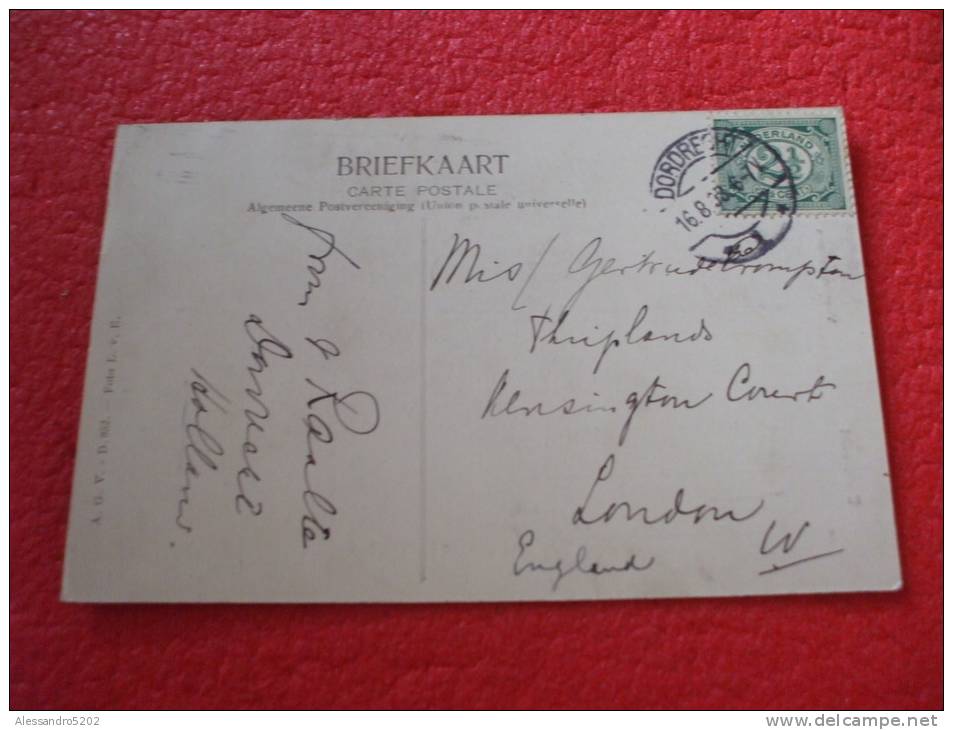 BRIEFKAART
CARTE POSTALE
Algemeene Postvereeniging (Union postale universelle)
DORDRECHT
16.8
NEDERLAND
2½
CENT
Miss Gertrude Crompton
Thriplands
Kensington Court
London
W
England
Raalta
Holland.
A. G. V. - D. 852. - Foto L. v. E.
Alessandro5202
www.delcampe.net